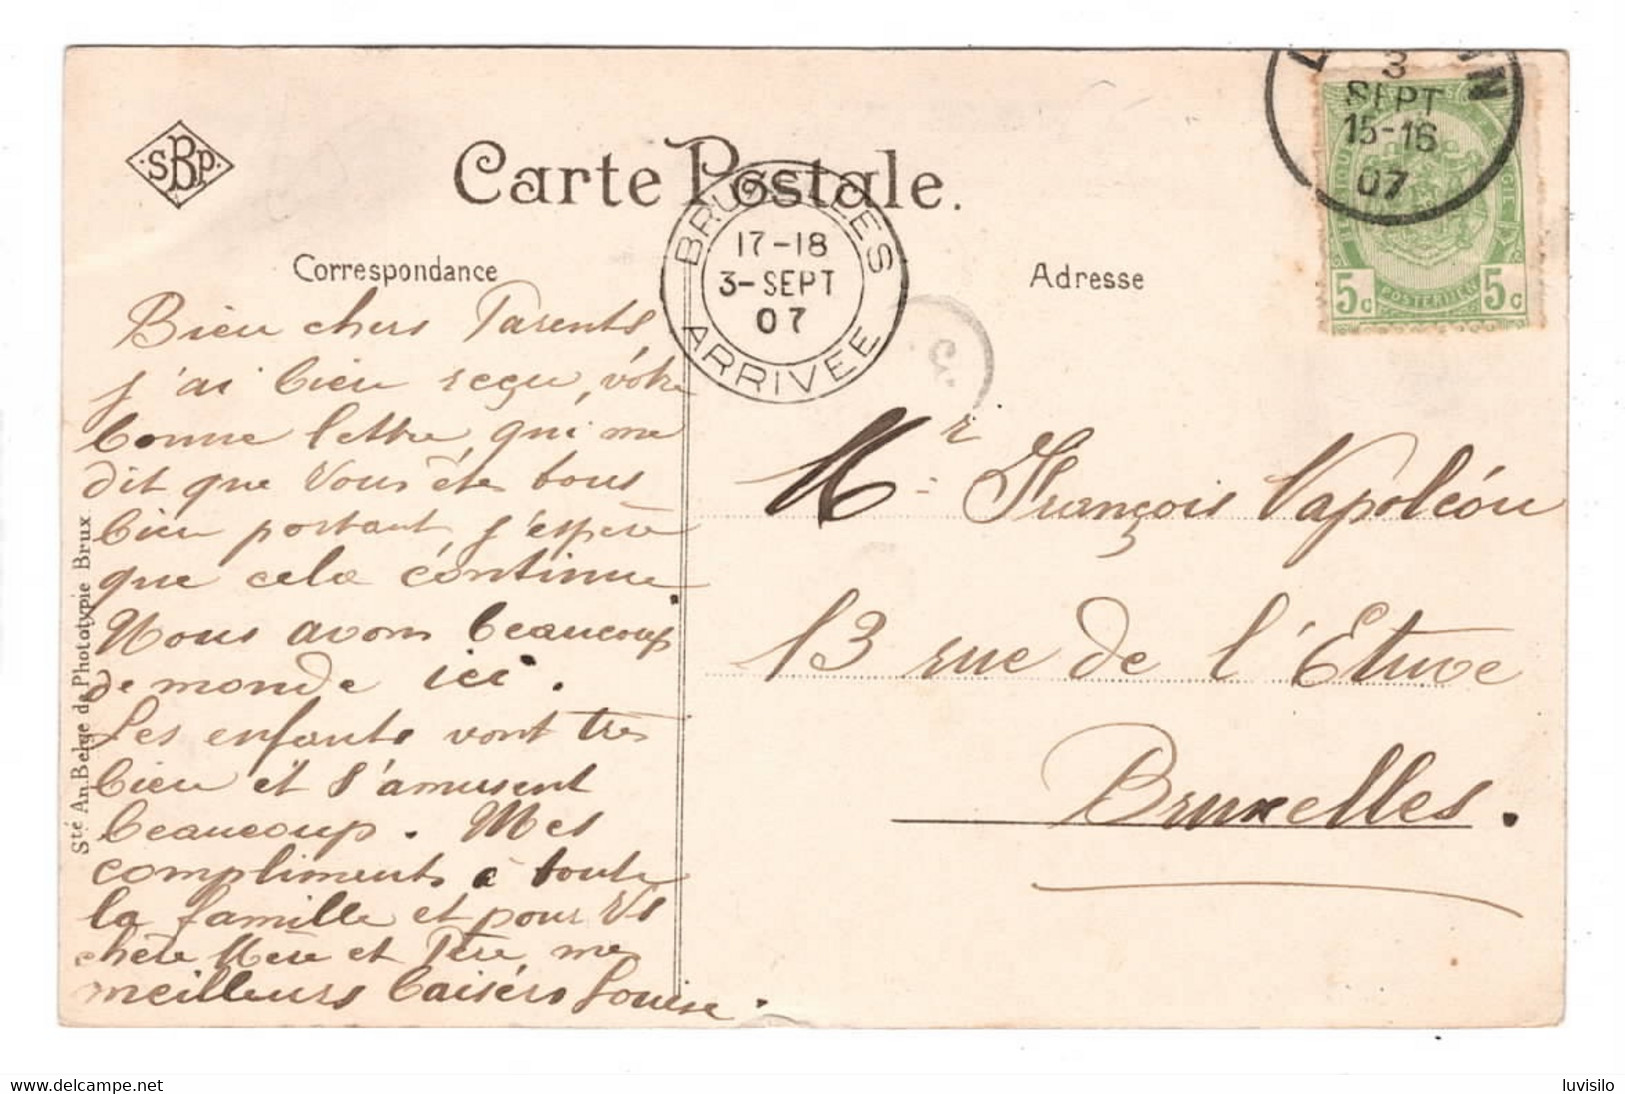 SBP
Carte Postale.
Correspondance
Adresse
BRUXELLES
17-18
3-SEPT
07
ARRIVEE
3
SEPT
15-16
07
5c POSTERIJEN 5c
Bien chers Parents,
j'ai bien reçu, vôtre
bonne lettre, qui me
dit que Vous êtes tous
bien portant, j'espère
que cela continue
Nous avons beaucoup
de monde ici.
Les enfants vont très
bien et s'amusent
beaucoup. Mes
compliments à toute
la famille et pour Vs
chère Mère et Père, mes
meilleurs baisérs Louise.
Mr François Napoléon
13 rue de l'Etuve
Bruxelles.
Sté An. Belge de Phototypie Brux
delcampe.net
luvisilo